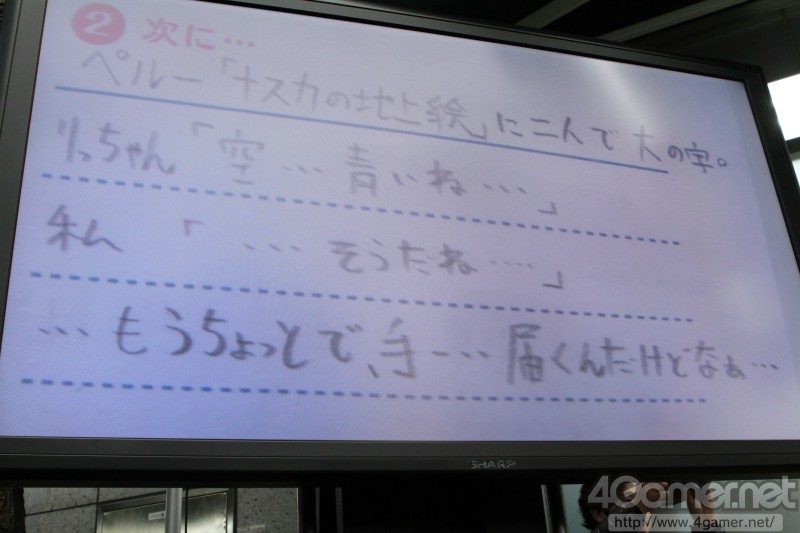 2 次に…
ペルー「ナスカの地上絵」に二人で 大の字。
りっちゃん「空…青いね…」
私 「…そうだね…」
…もうちょっとで、手ー… 届くんだけどなぁ…
SHARP
4Gamer.net
http://www.4gamer.net/